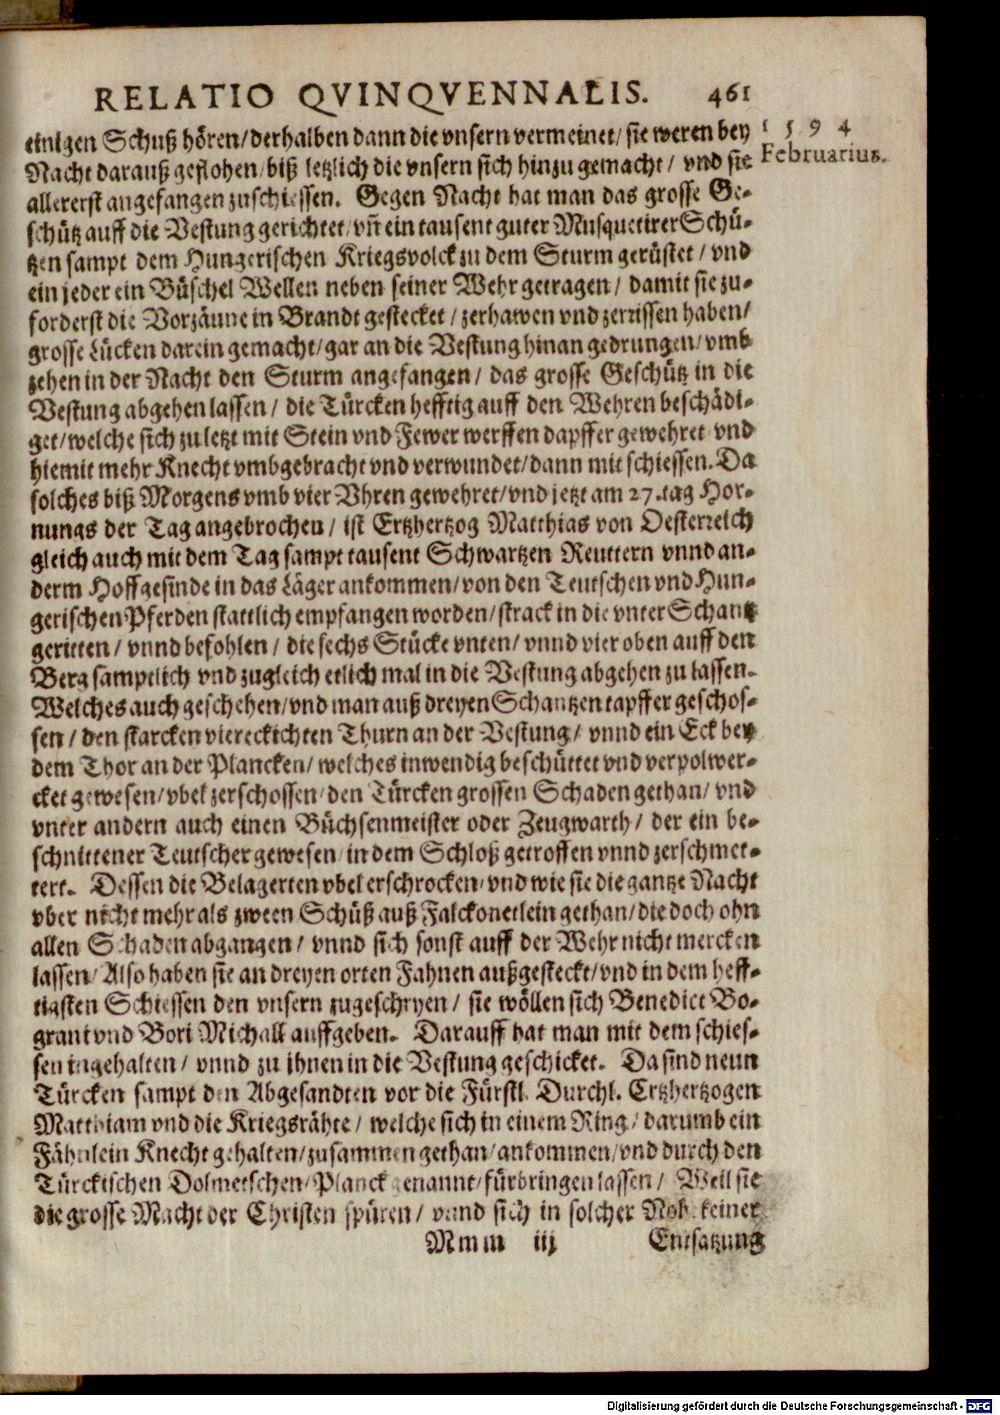 RELATIO QVINQVENNALIS. 461
1 5 9 4
Februarius.
einigen Schuß hören/derhalben dann die vnsern vermeinet/ sie weren bey
Nacht darauß geflohen/biß letzlich die vnsern sich hinzu gemacht/ vnd sie
allererst angefangen zuschiessen. Gegen Nacht hat man das grosse Ge-
schütz auff die Vestung gerichtet/vñ ein tausent guter Musquetirer Schü-
tzen sampt dem Hungerischen Kriegsvolck zu dem Sturm gerüstet/ vnd
ein jeder ein Büschel Wellen neben seiner Wehr getragen/ damit sie zu-
forderst die Vorzäune in Brandt gestecket/ zerhawen vnd zerrissen haben/
grosse Lücken darein gemacht/gar an die Vestung hinan gedrungen/ vmb
zehen in der Nacht den Sturm angefangen/ das grosse Geschütz in die
Vestung abgehen lassen/ die Türcken hefftig auff den Wehren beschädi-
get/welche sich zu letzt mit Stein vnd Fewer werffen dapffer gewehret vnd
hiemit mehr Knecht vmbgebracht vnd verwundet/dann mit schiessen. Da
solches biß Morgens vmb vier Vhren gewehret/vnd jetzt am 27.tag Hor-
nungs der Tag angebrochen/ ist Ertzhertzog Matthias von Oesterreich
gleich auch mit dem Tag sampt tausent Schwartzen Reuttern vnnd an-
derm Hoffgesinde in das Läger ankommen/von den Teutschen vnd Hun-
gerischen Pferden stattlich empfangen worden/strack in die vnter Schantz
geritten/ vnnd befohlen/ die sechs Stücke vnten/ vnnd vier oben auff den
Berg samptlich vnd zugleich etlich mal in die Vestung abgehen zu lassen.
Welches auch geschehen/vnd man auß dreyen Schantzen tapffer geschos-
sen/ den starcken viereckichten Thurn an der Vestung/ vnnd ein Eck bey
dem Thor an der Plancken/ welches inwendig beschüttet vnd verpolwer-
cket gewesen/vbel zerschossen/den Türcken grossen Schaden gethan/ vnd
vnter andern auch einen Büchsenmeister oder Zeugwarth/ der ein be-
schnittener Teutscher gewesen/in dem Schloß getroffen vnnd zerschmet-
tert. Dessen die Belagerten vbel erschrocken/vnd wie sie die gantze Nacht
vber nicht mehr als zween Schüß auß Falckonetlein gethan/die doch ohn
allen Schaden abgangen/ vnnd sich sonst auff der Wehr nicht mercken
lassen/Also haben sie an dreyen orten Fahnen außgesteckt/vnd in dem heff-
tigsten Schiessen den vnsern zugeschryen/ sie wöllen sich Benedict Bo-
grani vnd Bori Michall auffgeben. Darauff hat man mit dem schies-
sen ingehalten/ vnnd zu ihnen in die Vestung geschicket. Da sind neun
Türcken sampt den Abgesandten vor die Fürstl. Durchl. Ertzhertzogen
Matthiam vnd die Kriegsrähte/ welche sich in einem Ring/ darumb ein
Fähnlein Knecht gehalten/zusammen gethan/ankommen/vnd durch den
Türckischen Dolmetschen/Planck genannt/fürbringen lassen/ Weil sie
die grosse Macht der Christen spüren/ vnnd sich in solcher Noht keiner
Mmm iij Entsatzung
Digitalisierung gefördert durch die Deutsche Forschungsgemeinschaft - DFG